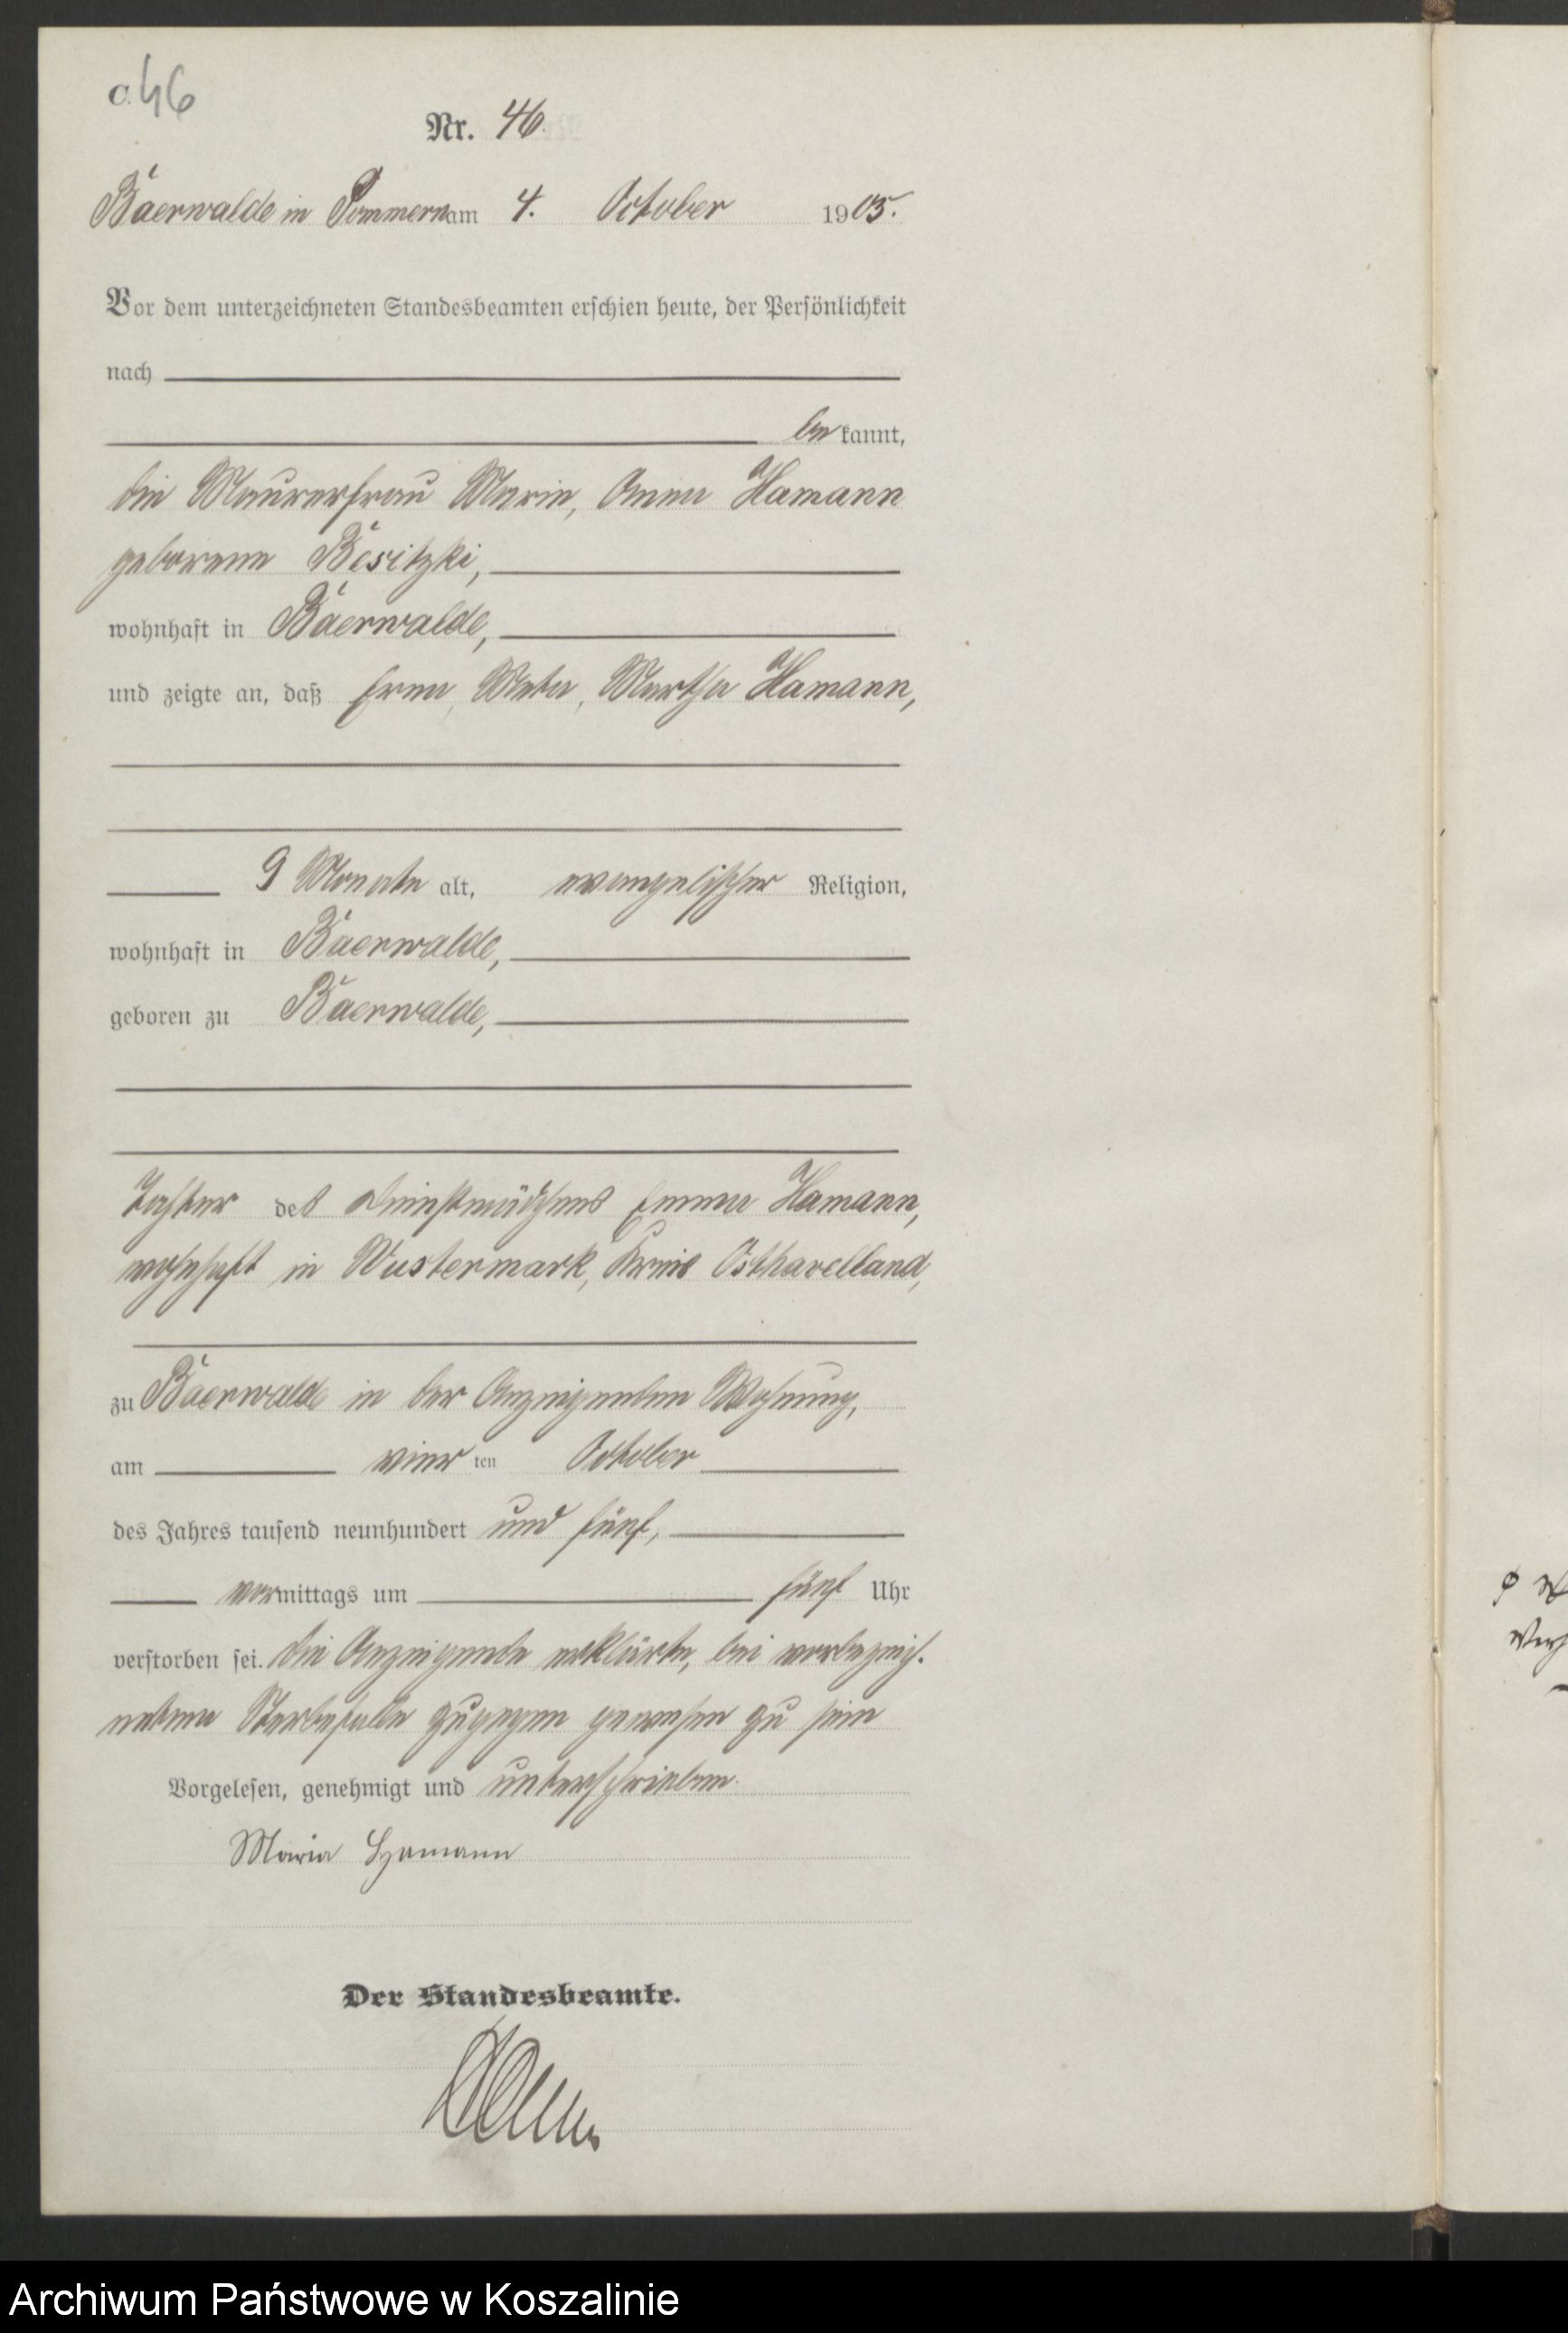 C. 46
Nr. 46.
Baerwalde in Pommern am 4. October 1905.
Vor dem unterzeichneten Standesbeamten erschien heute, der Persönlichkeit
nach
be kannt,
die Maurerfrau Marie, Anna Hamann
geborene Besitzki,
wohnhaft in Baerwalde,
und zeigte an, daß Erna, Meta, Martha Hamann,
9 Monate alt, evangelischer Religion,
wohnhaft in Baerwalde,
geboren zu Baerwalde,
Tochter des Dienstmädchens Emma Hamann,
wohnhaft in Wustermark, Kreis Osthavelland,
zu Baerwalde in der Anzeigenden Wohnung,
am vier ten October
des Jahres tausend neunhundert und fünf,
vormittags um fünf Uhr
verstorben sei. Die Anzeigende erklärte, bei vorbezeich-
netem Sterbefalle zugegen gewesen zu sein
Vorgelesen, genehmigt und unterschrieben.
Maria Hamann
Der Standesbeamte.
Archiwum Państwowe w Koszalinie